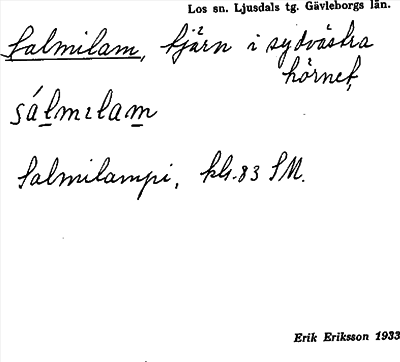 Los sn. Ljusdals tg. Gävleborgs län.
Salmilam, tjärn i sydvästra
hörnet,
sálmılam
Salmilampi, kls. 83 SM.
Erik Eriksson 1933